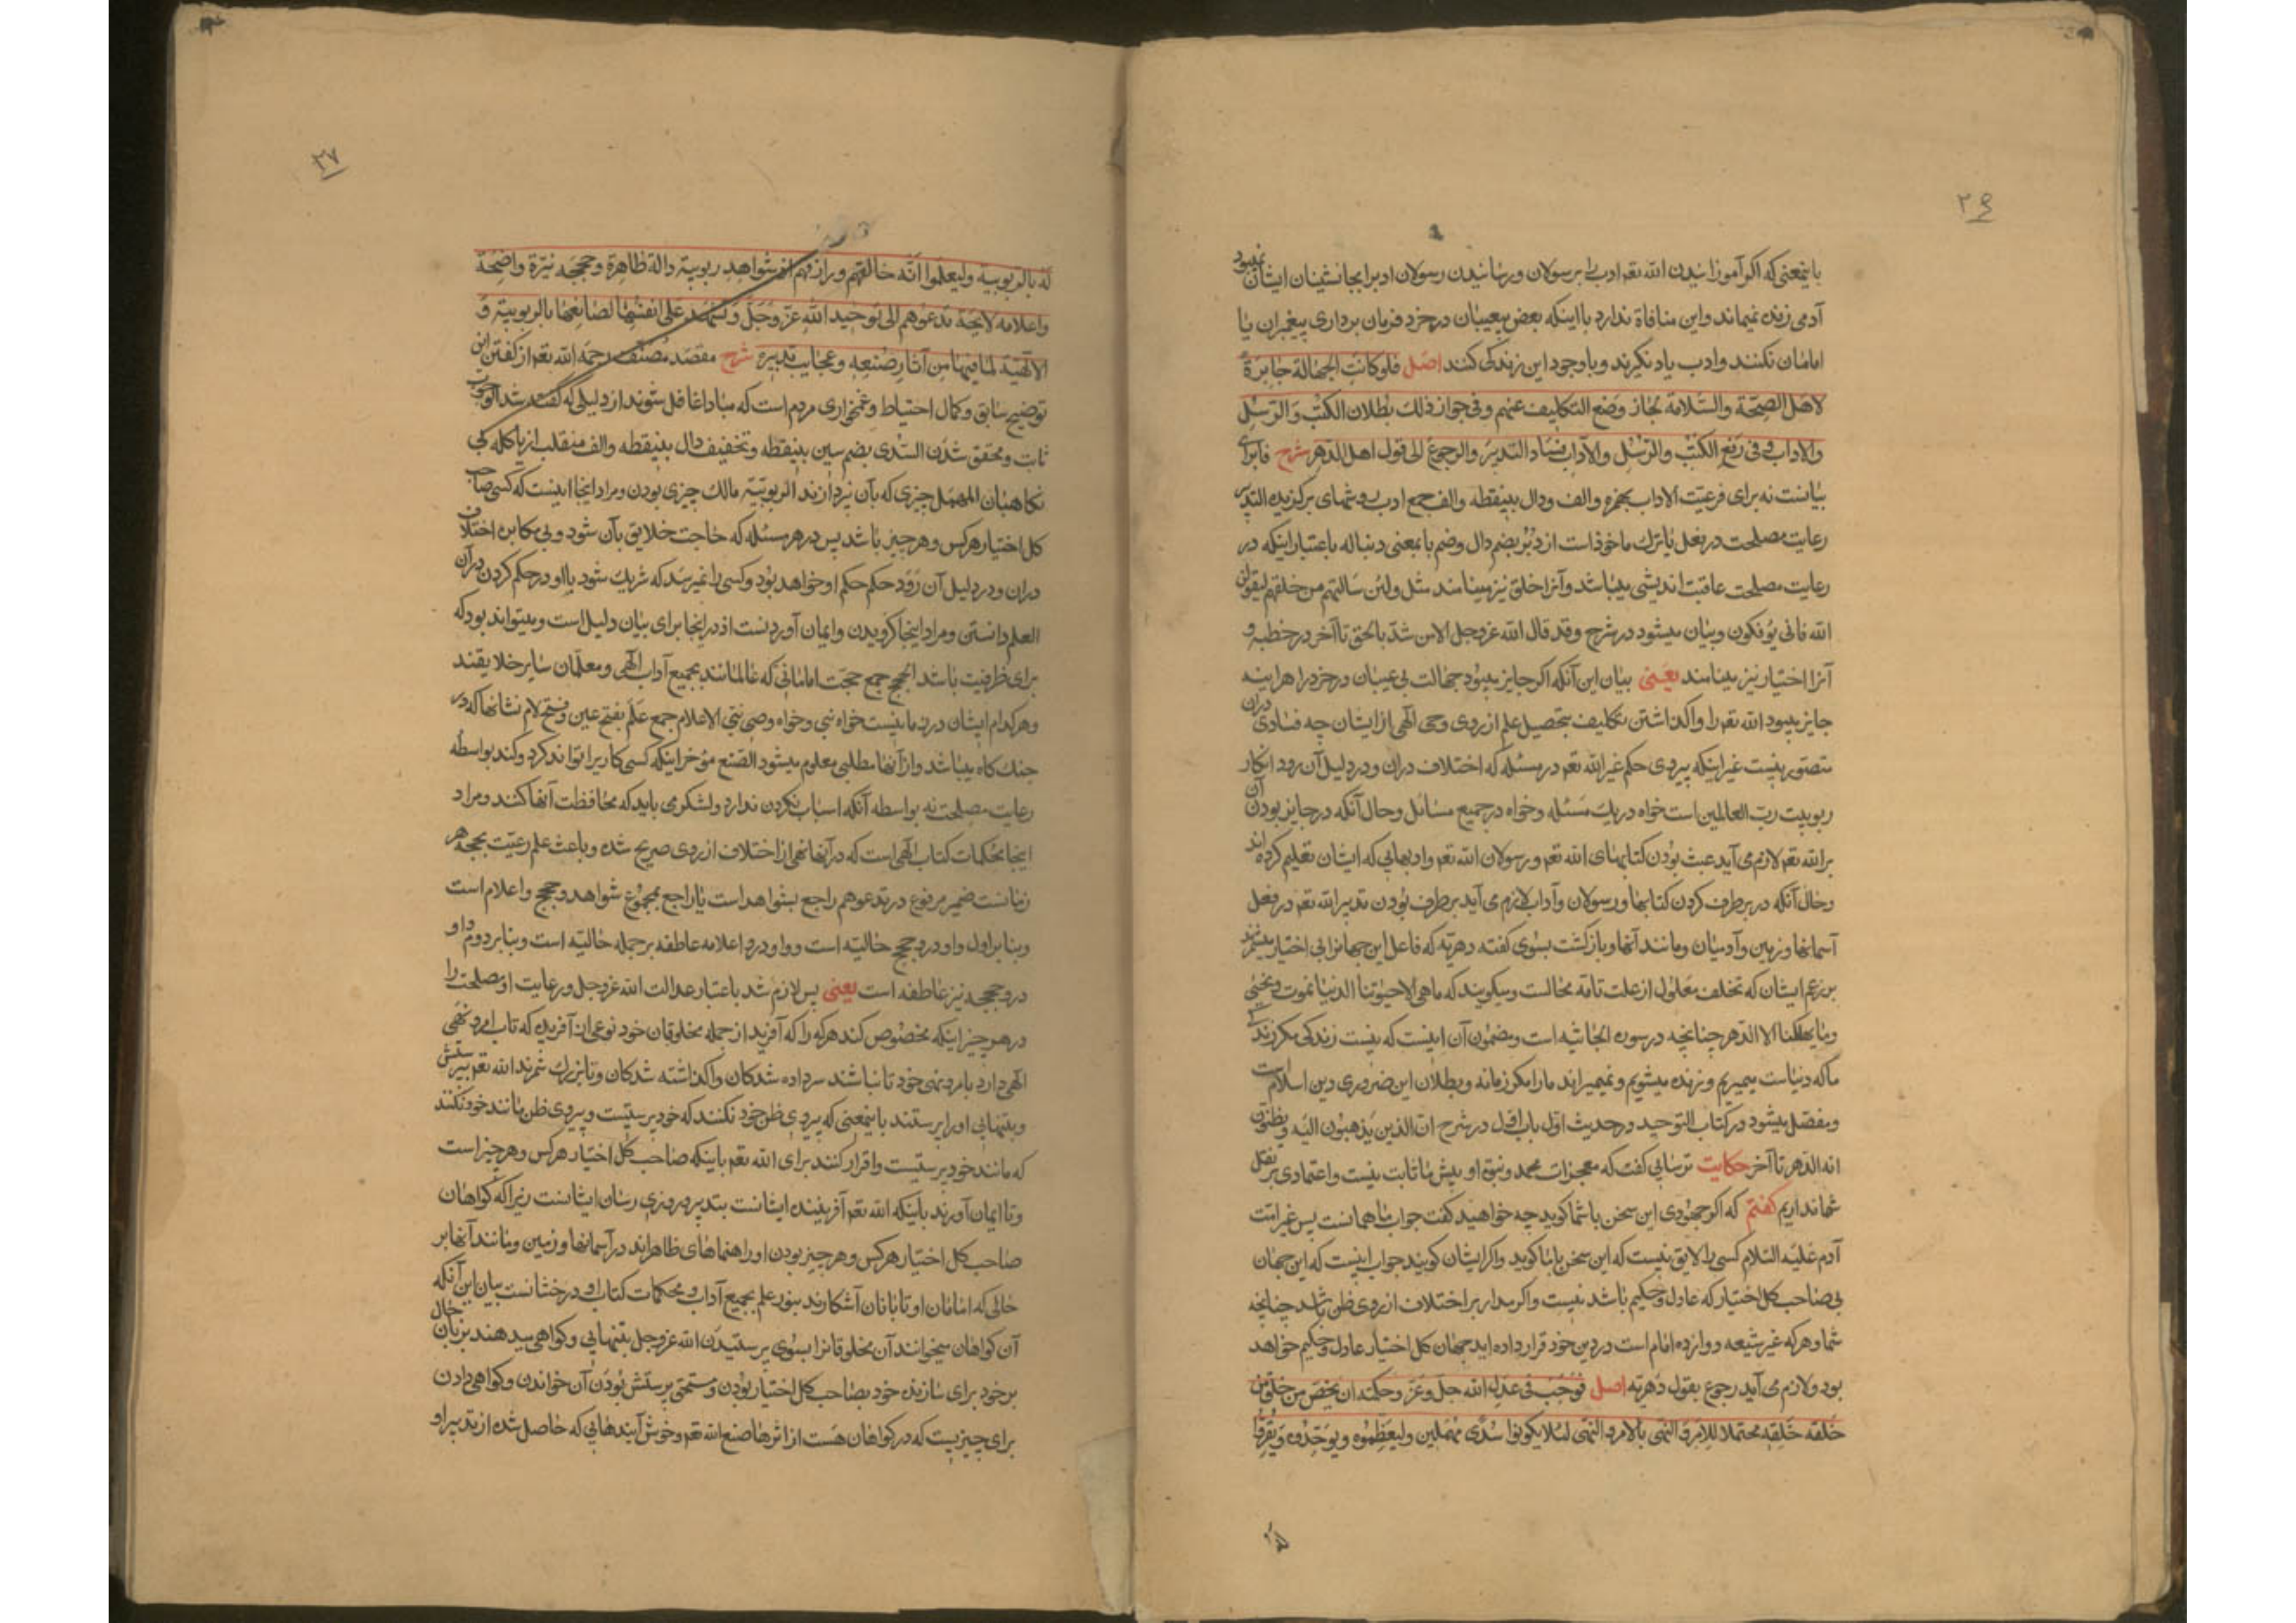 ۲۶
باینمعنی که اکر آموزانیدن الله تعم ادب را برسولان ورسانیدن رسولان ادبرا بجانشینان ایشان نمیبود
آدمی زنده نمیماند واین منافاة ندارد بااینکه بعض بیعیبان درخرد فرمان برداری پیغمبران یا
امامان نکنند وادب یاد نکیرند وباوجود این زندکی کنند اصل فلوکانت الجهالة جایزة
لاهل الصحّة والسّلامة لجاز وضع التکالیف عنهم وفی جواز ذلك بطلان الکتب والرّسل
والاداب وفی رفع الکتب والرّسل والآداب فساد التدبیر والرجوع الی قول اهل الدّهر شرح فا برای
بیانست نه برای فرعیّت الاداب بهمزه والف ودال بینقطه والف جمع ادب روشهای برکزیده التدبیر
رعایت مصلحت در فعل یا ترك ماخوذ است از دُبُر بضم دال وضم با بمعنی دنباله باعتبار اینکه در
رعایت مصلحت عاقبت اندیشی میباشد وآنرا خلق نیز مینامند مثل ولئن سالتهم من خلقهم لیقولن
الله فانی یؤفکون وبیان میشود در شرح وقد قال الله عزوجل الامن شدّ بالحق تا آخر در خطبه و
آنرا اختیار نیز مینامند یعنی بیان این آنکه اکر جایز میبود جهالت بی عیبان درخرد را هراینه
جایز میبود الله تعم را واکذاشتن تکالیف بتحصیل علم از روی وحی الهی از ایشان چه فسادی دران
متصوّر نیست غیر اینکه پیروی حکم غیر الله تعم در مسئله که اختلاف دران ودر دلیل آن رود انکار
ربوبیت ربّ العالمین است خواه در یك مسئله وخواه در جمیع مسائل وحال آنکه در جایز بودن آن
برالله تعم لازم می آید عبث بودن کتابهای الله تعم ورسولان الله تعم وادبهایی که ایشان تعلیم کرده اند
وحال آنکه در برطرف کردن کتابها ورسولان وآداب لازم می آید برطرف بودن تدبیر الله تعم در فعل
آسمانها وزمین وآدمیان ومانند آنها وبازکشت بسوی کفته دهریّه که فاعل این جهانرا بی اختیار میشمرند
برزعم ایشان که تخلف معلول از علت تامّه محالست ومیکویند که ماهی الاحیوتنا الدنیا نموت ونحیی
ومایهلکنا الا الدّهر چنانچه در سوره الجاثیه است ومضمون آن اینست که نیست زندکی مکر زندکی
ما که دنیاست میمیریم وزنده میشویم ونمیمیراند مارا مکر زمانه وبطلان این ضروری دین اسلام است
ومفصّل میشود در کتاب التوحید در حدیث اوّل باب اوّل در شرح انّ الذین یذهبون الیه ویظنّون
انه الدّهر تا آخر حکایت ترسایی کفت که معجزات محمد ونبوّت او پیش ما ثابت نیست واعتمادی بر نقل
شما نداریم کفتم که اکر جهودی این سخن با شما کوید چه خواهید کفت جواب ما همانست پس غیر امّت
آدم علیه السّلام کسی را لایق نیست که این سخن با ما کوید واکر ایشان کویند جواب اینست که این جهان
بی صاحب کل اختیار که عادل وحکیم باشد نیست واکر مدار بر اختلاف از روی ظن باشد چنانچه
شما وهرکه غیر شیعه دوازده امام است در دین خود قرار داده اید جهان کل اختیار عادل وحکیم نخواهد
بود ولازم می آید رجوع بقول دهریّه اصل فوجب فی عدل الله جلّ وعزّ وحکمته ان یخصّ من خلق من
خلقه خلقة محتملة للامر والنّهی بالامر والنّهی لئلا یکونوا سُدًی مهملین ولیعظّموه ویوحّدوه ویقرّوا
له با
۲۷
له بالربوبیة ولیعلموا انّه خالقهم ورازقهم اذ شواهد ربوبیّته دالة ظاهرة وحججه نیّرة واضحة
واعلامه لایحة تدعوهم الی توحید الله عزّوجلّ وتشهد علی انفسها لصانعها بالربوبیّة و
الالهیّة لما فیها من آثار صنعه وعجایب تدبیره شرح مقصد مصنّف رحمه الله تعم از کفتن این
توضیح سابق وکمال احتیاط وغمخواری مردم است که مبادا غافل شوند از دلیلی که کفته شد الوجوب
ثابت ومحقق شدن السّدی بضم سین بینقطه وتخفیف دال بینقطه والف منقلب از یا کله بی
نکاهبان المهمل چیزی که بآن نپردازند الربوبیّة مالك چیزی بودن ومراد اینجا اینست که کسی صاحب
کل اختیار هرکس وهرچیز باشد پس در هر مسئله که حاجت خلایق بآن شود وبی مکابره اختلاف
دران ودر دلیل آن رود حکم حکم او خواهد بود وکسی را نمیرسد که شریك شود بااو در حکم کردن دران
العلم دانستن ومراد اینجا کرویدن وایمان آوردنست اذ در اینجا برای بیان دلیل است ومیتواند بود که
برای ظرفیت باشد الحجج جمع حجّت امامانی که عالمانند بجمیع آداب الهی ومعلّمان سایر خلایقند
وهرکدام ایشان در زمانیست خواه نبی وخواه وصی نبی الاعلام جمع عَلَم بفتح عین وفتح لام نشانها که در
جنك کاه میباشد واز آنها مطلبی معلوم میشود الصنع مؤخر اینکه کسی کاریرا تواند کرد وکند بواسطه
رعایت مصلحت نه بواسطه آنکه اسباب نکردن ندارد ولشکر می باید که محافظت آنها کنند ومراد
اینجا محکمات کتاب الهی است که در آنها نهی از اختلاف از روی صریح شده وباعث علم رعیّت بحجه هر
زمانست ضمیر مرفوع در تدعوهم راجع بشواهد است یا راجع بمجموع شواهد وحجج واعلام است
وبنابر اول واو در وحجج حالیّه است وواو در واعلامه عاطفه بر جمله حالیّه است وبنابر دوم واو
در وحججه نیز عاطفه است یعنی پس لازم شد باعتبار عدالت الله عزوجل ورعایت او مصلحت را
در هر چیز اینکه مخصوص کند هرکه را که آفرید از جمله مخلوقان خود نوعی از آفریده که تاب امر ونهی
الهی دارد بامر ونهی خود تا نباشند سر داده شدکان واکذاشته شدکان وتا بزرك شمرند الله تعم بپرستش
وبتنهایی اورا پرستند باینمعنی که پیروی ظن خود نکنند که خود پرستیست وپیروی ظن مانند خود نکنند
که مانند خود پرستیست واقرار کنند برای الله تعم باینکه صاحب کل اختیار هرکس وهرچیز است
وتا ایمان آورند باینکه الله تعم آفریننده ایشانست بتدبیر وروزی رسان ایشانست زیرا که کواهان
صاحب کل اختیار هرکس وهرچیز بودن او راهنماهای ظاهراند در آسمانها وزمین ومانند آنها بر
حالی که امامان او تابانان آشکارند بنور علم بجمیع آداب ومحکمات کتاب او درخشانست بیان این آنکه
آن کواهان میخوانند آن مخلوقانرا بسوی پرستیدن الله عزوجل بتنهایی وکواهی میدهند بزبان حال
بر خود برای سازنده خود بصاحب کل اختیار بودن ومستحق پرستش بودن آن خواندن وکواهی دادن
برای چیزیست که در کواهان هست از اثرها صنع الله تعم وخوش آیندهایی که حاصل شده از تدبیر او